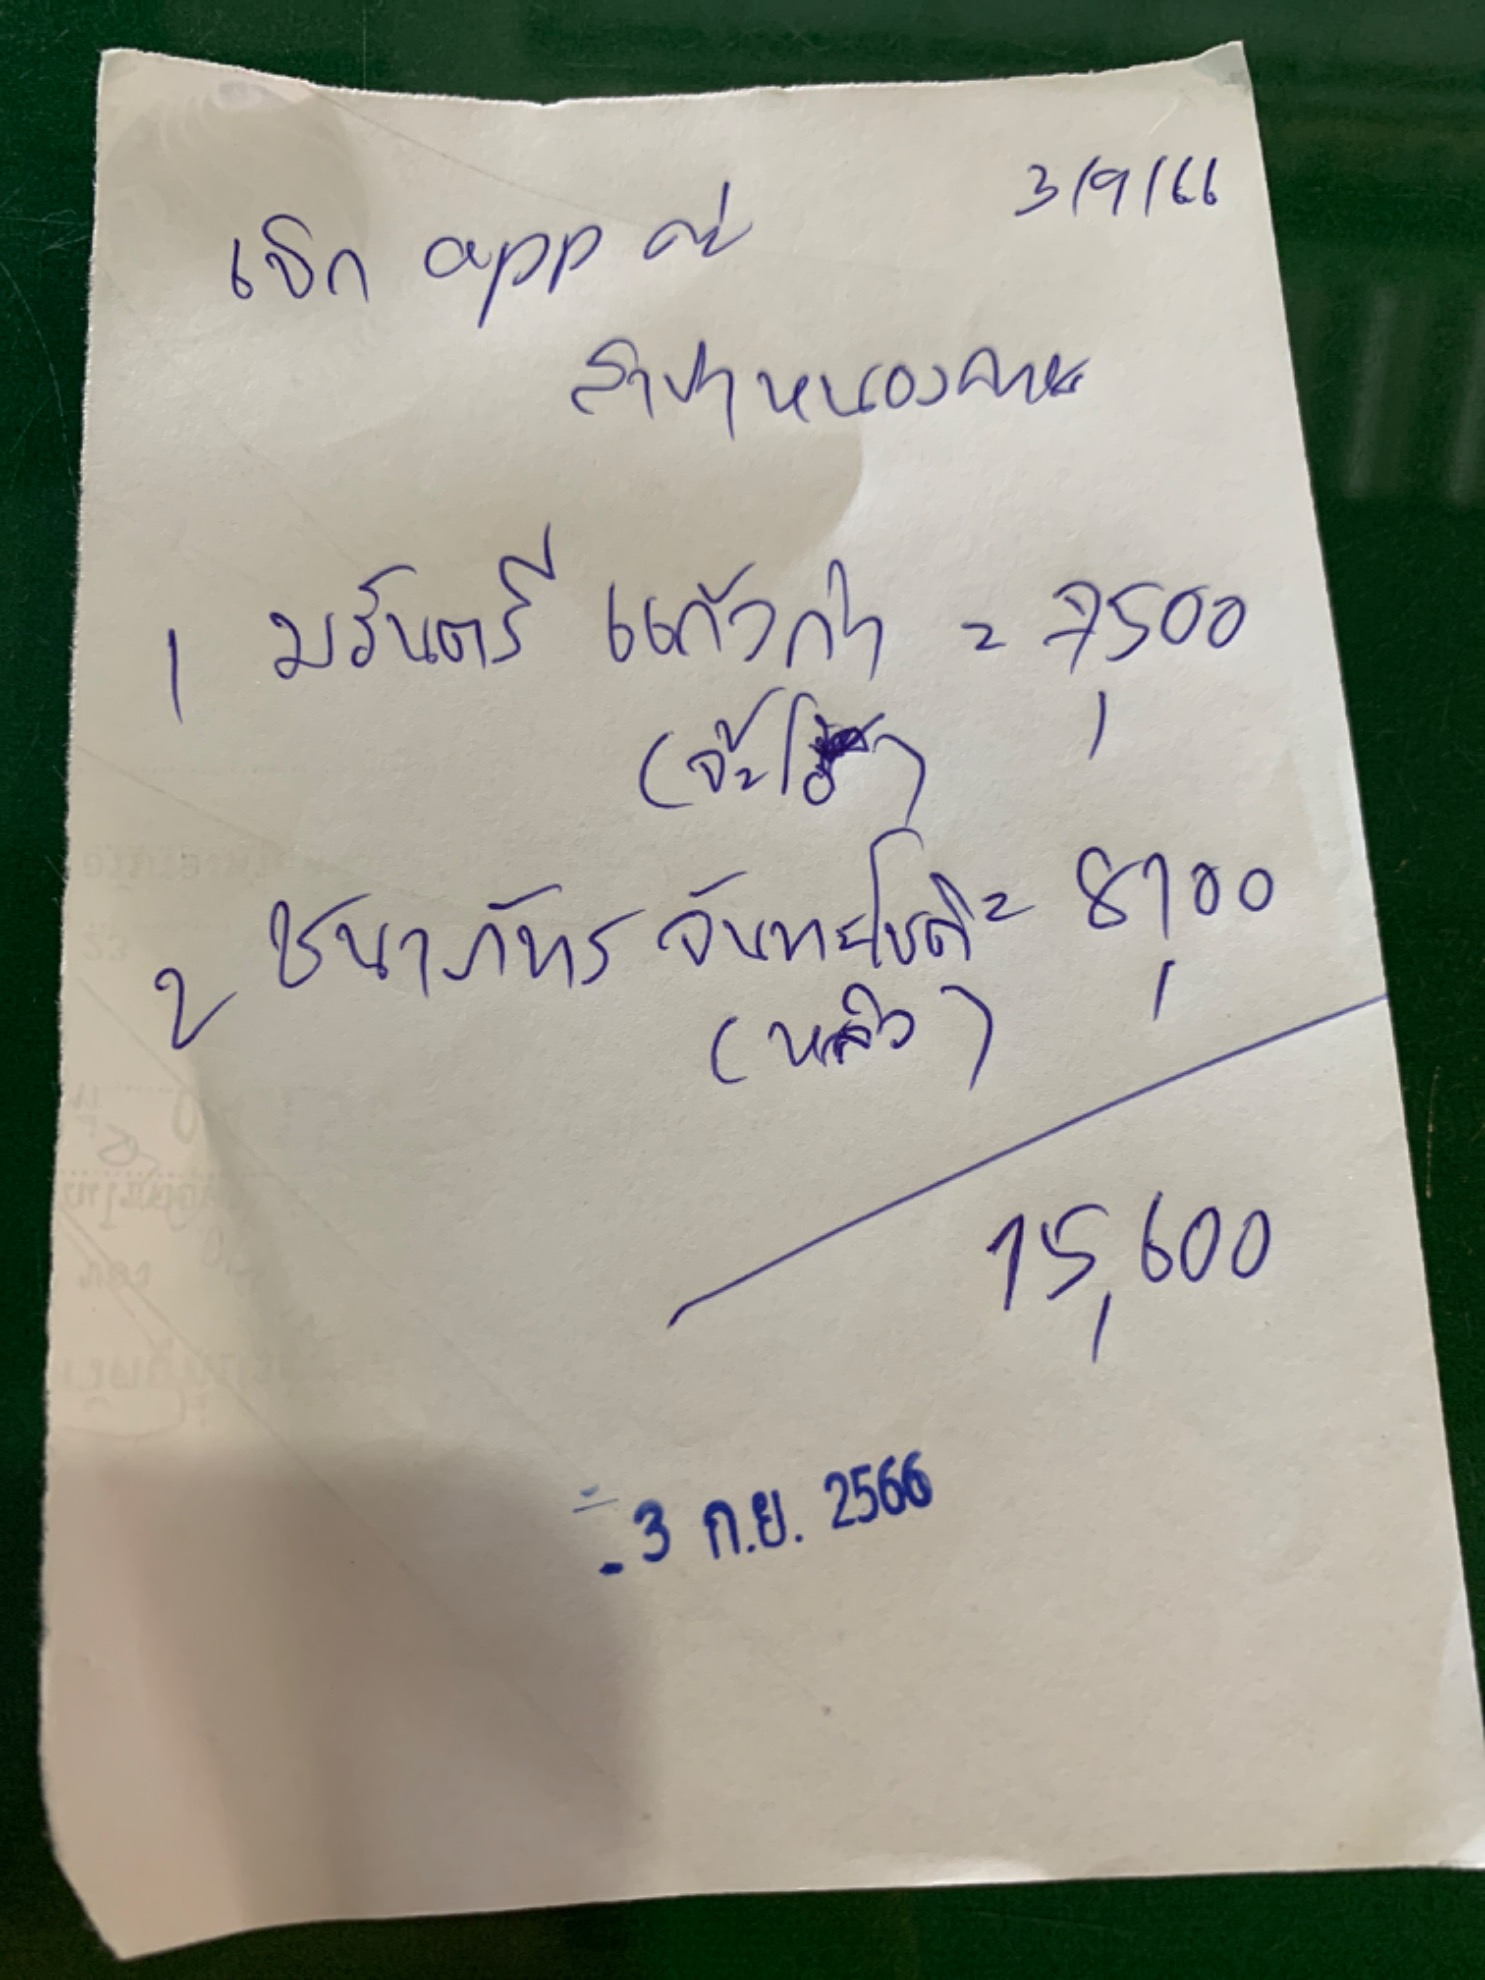 3/9/66
เบิก app ค่า
สาขาหนองคาย
1 มรันตรี แก้วกำ = 7500
(จ๊ะโอ๋)
2 ชนาภัทร จันทะโชติ = 8100
(หลิว)
15,600
- 3 ก.ย. 2566